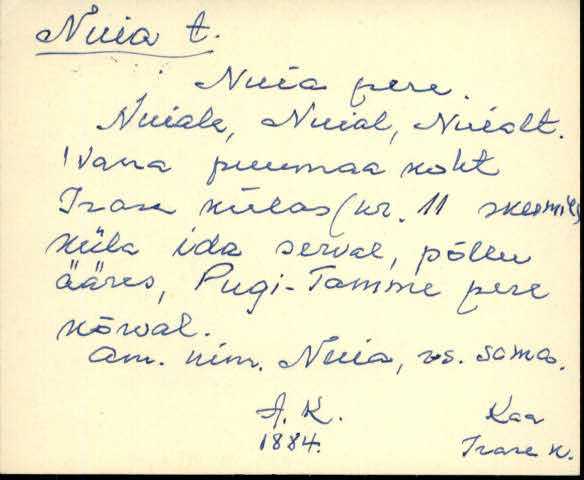 Nuia t.
Nuia pere.
Nuiale, Nuial, Nuialt.
Vana puumaa koht
Irase külas (nr. 11 skeemil)
küla ida serval, põllu
ääres, Pugi-Tamme pere
kõrval.
Am. nim. Nuia, rs. sama.
A. K. Kaa
1884. Irase k.